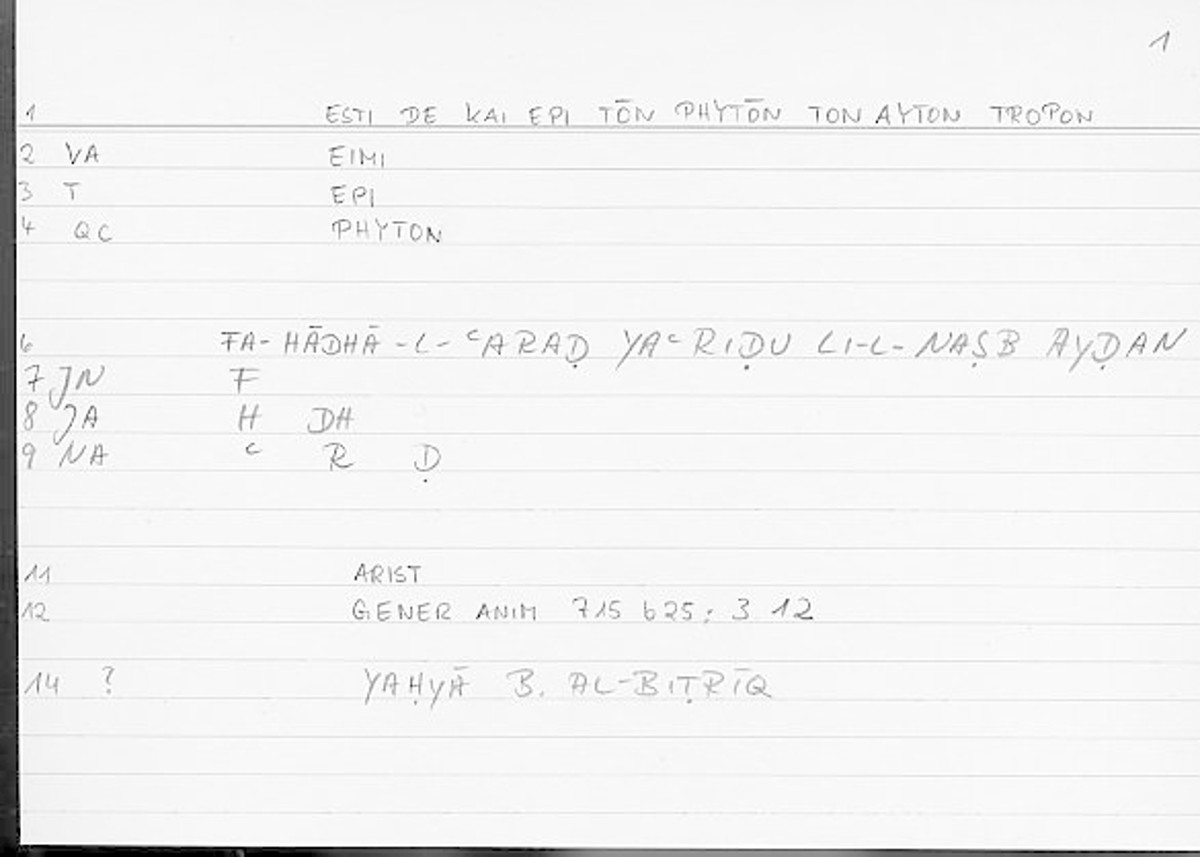 1
1 ESTI DE KAI EPI TŌN PHYTŌN TON AYTON TROPON
2 VA EIMI
3 T EPI
4 QC PHYTON
6 FA- HĀDHĀ -L- ᶜARAḌ YAᶜRIḌU LI-L- NAṢB AYḌAN
7 JN F
8 JA H DH
9 NA ᶜ R Ḍ
11 ARIST
12 GENER ANIM 715 b25; 3 12
14 ? YAḤYĀ B. AL-BIṬRĪQ